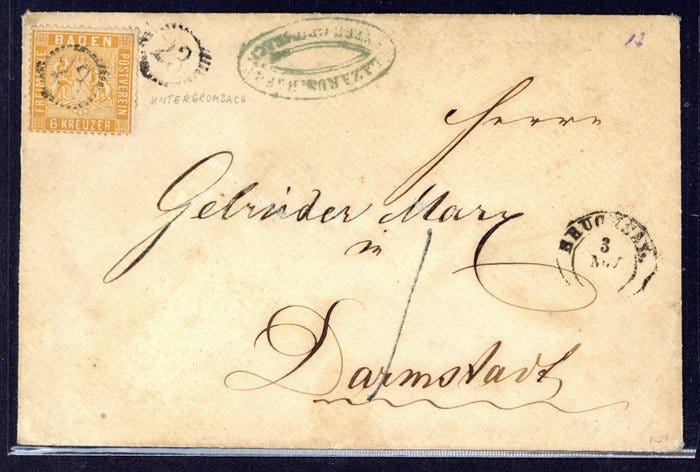 BADEN
FREIMARKE
POSTVEREIN
6 KREUZER
23
UNTERGROMBACH
LAZARUS
12
Herrn
Gebrüder Marx
in
Darmstadt
BRUCHSAL
3